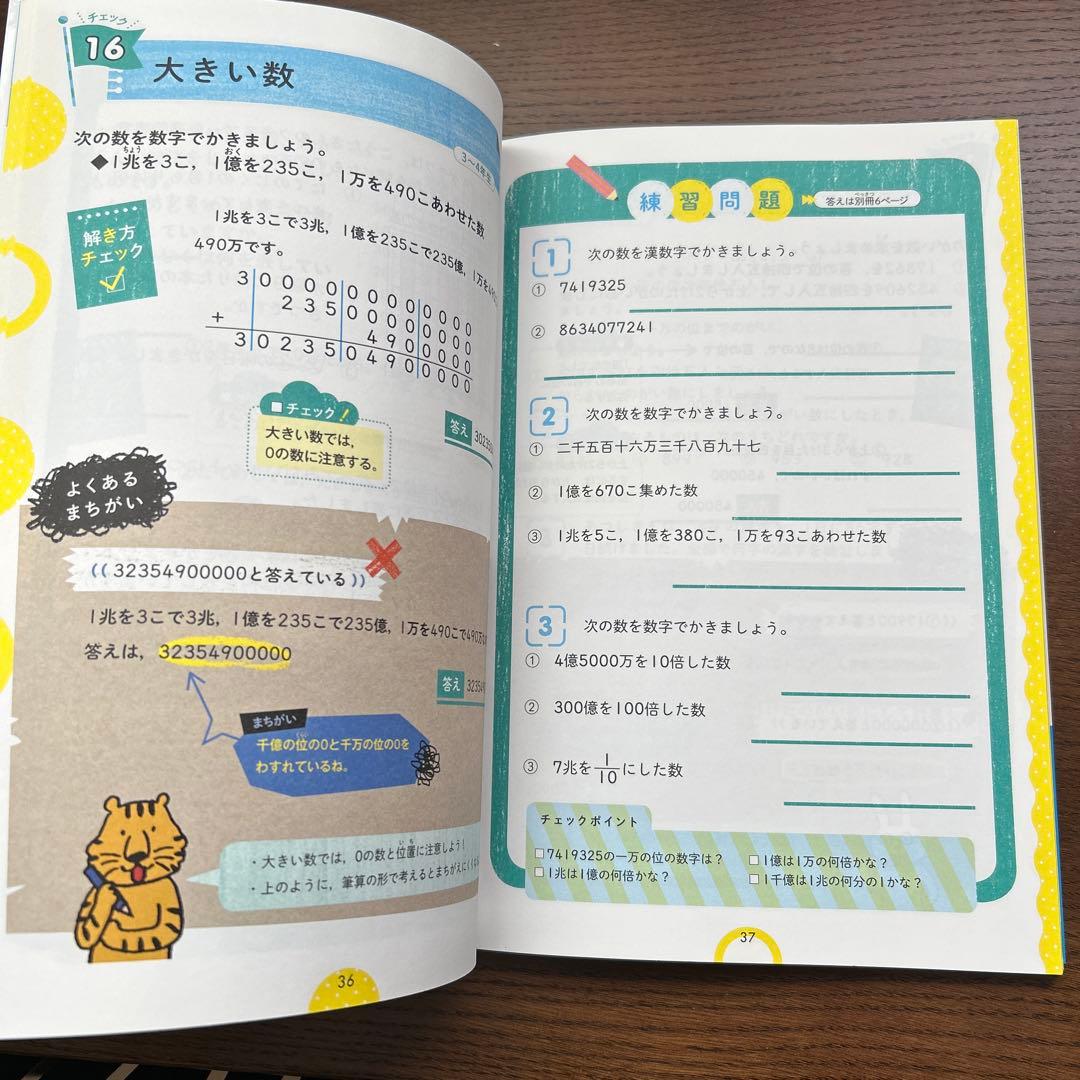 チェック
16
大きい数
3〜4年生
次の数を数字でかきましょう。
ちょう おく
◆1兆を3こ，1億を235こ，1万を490こあわせた数
解き方
チェック
1兆を3こで3兆，1億を235こで235億，1万を490
490万です。
3000000000000
23500000000
+ 4900000
3023504900000
チェック！
大きい数では，
0の数に注意する。
答え 30235
よくある
まちがい
((32354900000と答えている))
1兆を3こで3兆，1億を235こで235億，1万を490こで490万
答えは，32354900000
答え 32354
まちがい
くらい
千億の位の0と千万の位の0を
わすれているね。
いち
・大きい数では，0の数と位置に注意しよう！
・上のように，筆算の形で考えるとまちがえにくく
36
練習問題
べっさつ
答えは別冊6ページ
1 次の数を漢数字でかきましょう。
① 7419325
② 8634077241
2 次の数を数字でかきましょう。
① 二千五百十六万三千八百九十七
② 1億を670こ集めた数
③ 1兆を5こ，1億を380こ，1万を93こあわせた数
3 次の数を数字でかきましょう。
① 4億5000万を10倍した数
② 300億を100倍した数
③ 7兆を1/10にした数
チェックポイント
□7419325の一万の位の数字は？ □1億は1万の何倍かな？
□1兆は1億の何倍かな？ □1千億は1兆の何分の1かな？
37